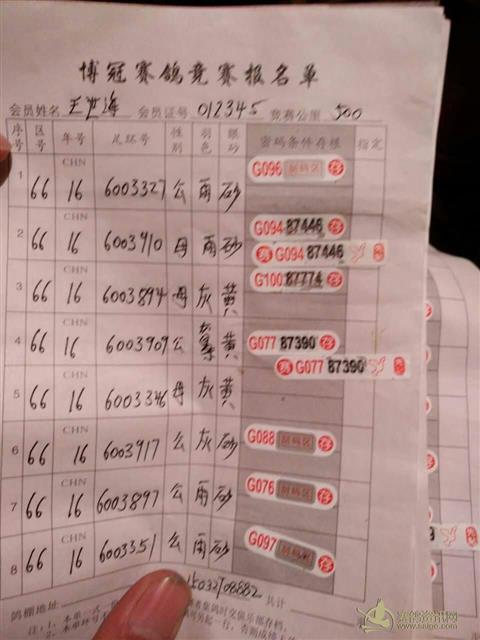 博冠赛鸽竞赛报名单
会员姓名 王世海 会员证号 012345 竞赛公里 500
序号 区号 年号 足环号 性别 羽色 眼砂 密码条件存根 指定
1 66 CHN 16 6003327 公 雨 砂 G096 刮码区 存
2 66 CHN 16 6003910 母 雨 砂 G094 87446 存
G094 87446
3 66 CHN 16 6003894 母 灰 黄 G100 87774 存
4 66 CHN 16 6003909 公 黄 G077 87390 存
G077 87390
5 66 CHN 16 6003346 母 灰 黄
6 66 CHN 16 6003917 公 灰 砂 G088 刮码区 存
7 66 CHN 16 6003897 公 雨 砂 G076 刮码区 存
8 66 CHN 16 6003351 公 雨 砂 G097 存
鸽棚地址 15032908882 共计
注：1、本单一式
2、本单环号
赛鸽资讯网
www.saige.com